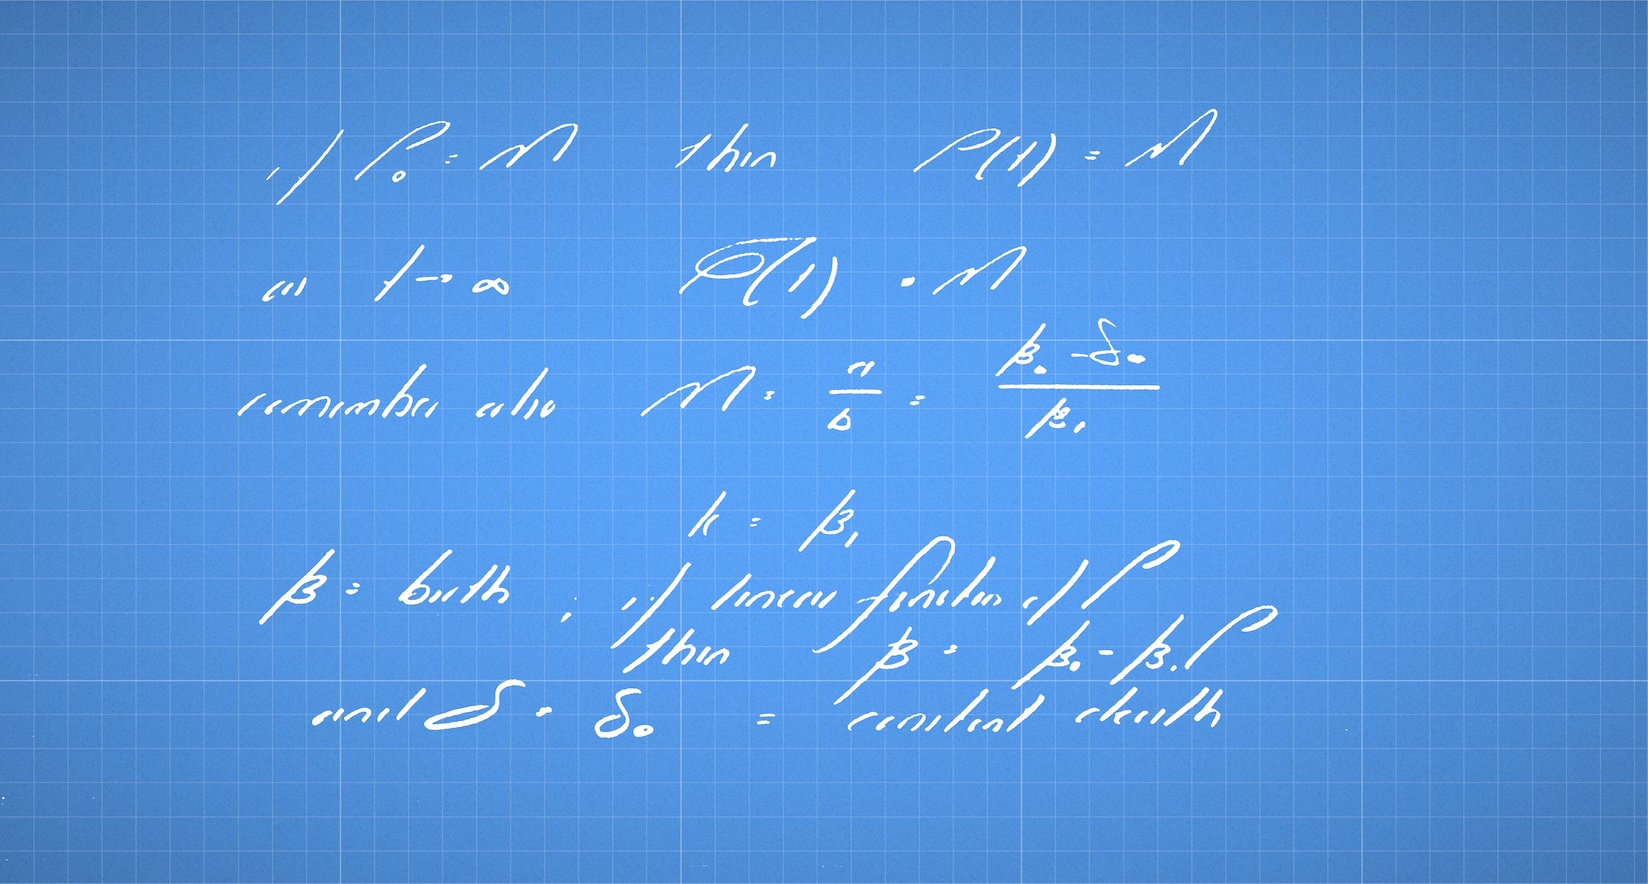 if P₀ = M then P(t) = M
as t → ∞ P(t) = M
remember also M = a/b = (β₀ - δ₀)/β₁
k = β₁
β = birth ; if linear function of P
then β = β₀ - β₁P
and δ = δ₀ = constant death